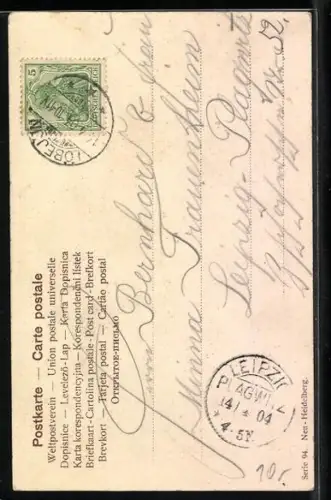 Postkarte — Carte postale
Weltpostverein — Union postale universelle
Dopisnice — Levelező-Lap — Karta Dopisnica
Karta korespondencyjna — Korespondenční listek
Briefkaart - Cartolina postale - Post card - Brefkort
Brevkort — Tarjeta postal — Cartão postal
Открытое письмо
5
LÖBEJÜN
Herrn Bernhard & frau
Minna Frauenheim
Leipzig-Plagwitz
52.
LEIPZIG
PLAGWITZ
14/ 04
4-5N
10.-
Serie 94. Neu-Heidelberg.